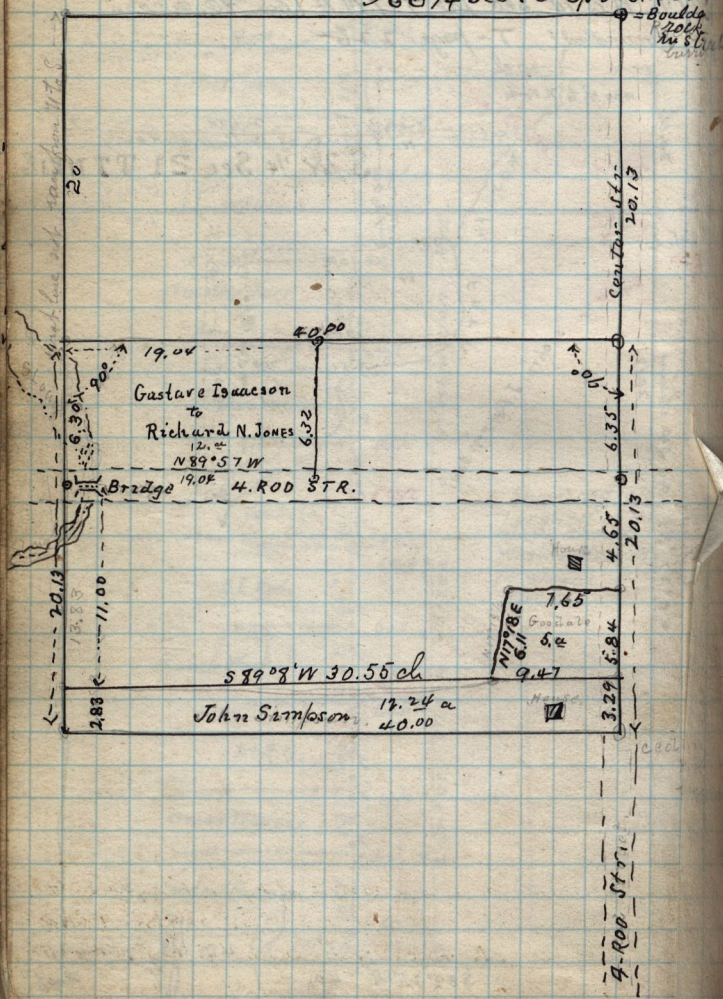 = Boulde
rock
in str
20
Center Str
20.13
40.00
19.04
90°
90°
Gustave Isaacson
to
Richard N. JONES
12. a
N 89° 57 W
19.04
6.30
6.32
6.35
Bridge
4. ROD STR.
20.13
13.83
11.00
4.65
20.13
House
7.65
N 17° 18 E
6.11
Goodale
5. a
5.84
9.47
S 89° 8' W 30.55 ch
2.83
John Simpson
12.24 a
40.00
House
3.29
4-ROD Str.